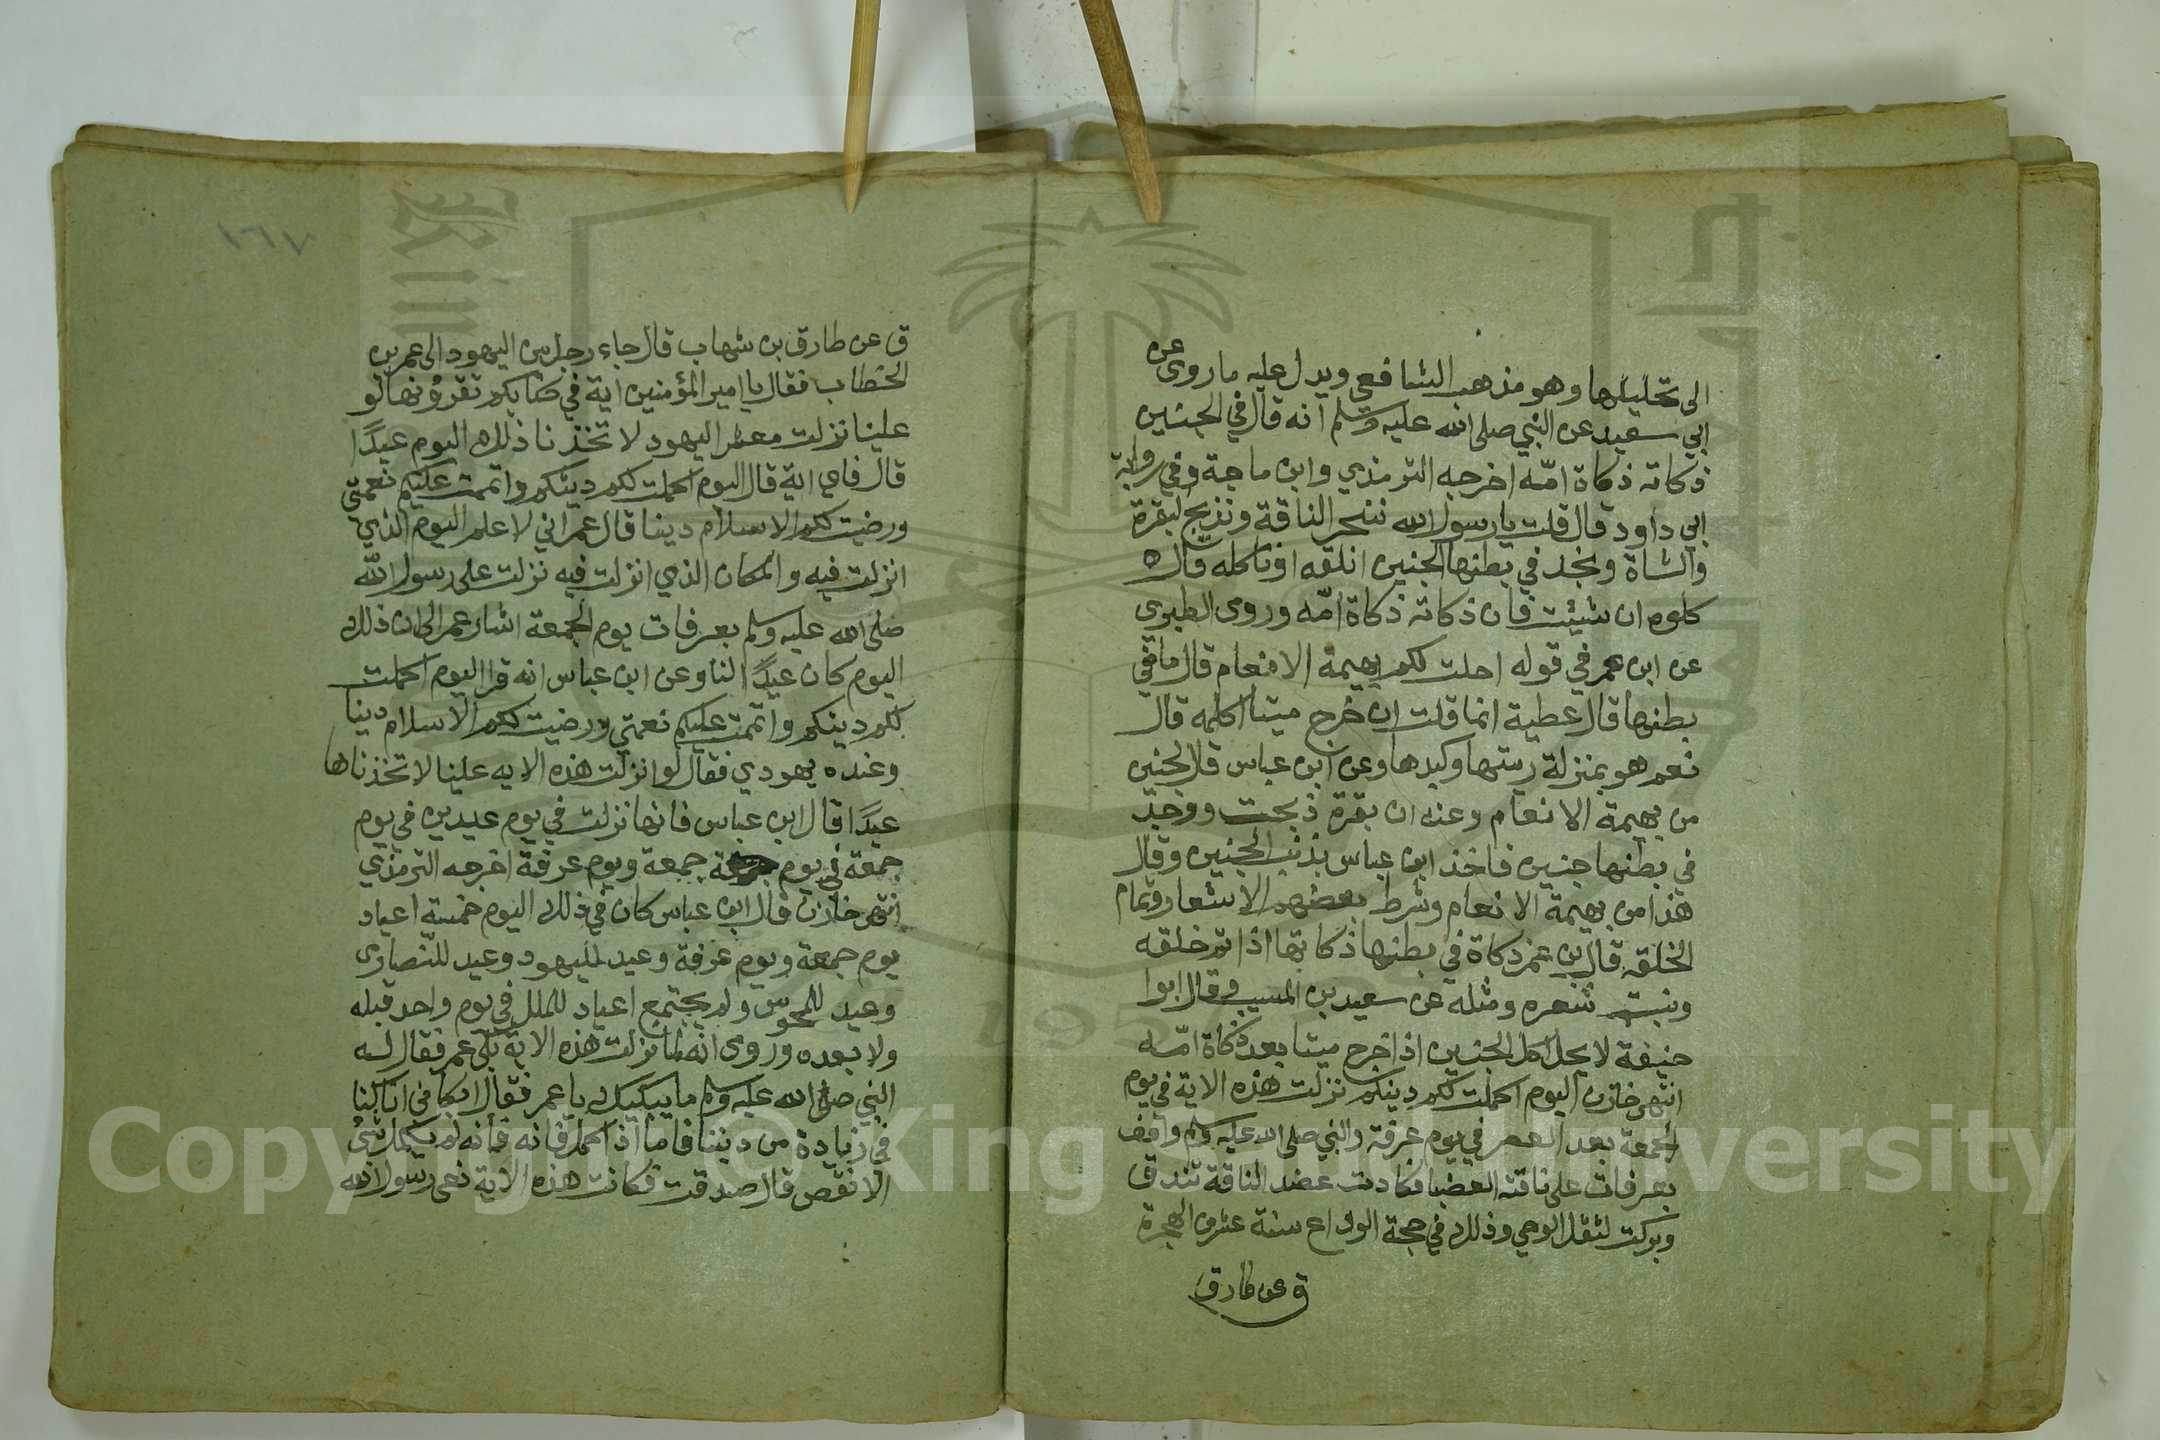 الى تحليلها وهو مذهب الشافعي ويدل عليه ما روى عن
ابي سعيد عن النبي صلى الله عليه وسلم انه قال في الجنين
ذكاته ذكاة امّه اخرجه الترمذي وابن ماجة وفي رواية
ابي داود قال قلت يا رسول الله ننحر الناقة ونذبح البقرة
والشاة ونجد في بطنها الجنين انلقه او ناكله قال
كلوه ان شئت فان ذكاته ذكاة امّه وروى الطبرى
عن ابن عمر في قوله احلت لكم بهيمة الانعام قال ما في
بطنها قال عطية انما قلت ان خرج ميتا اكله قال
نعم هو بمنزلة ريتها وكبدها وعن ابن عباس قال الجنين
من بهيمة الانعام وعنه ان بقرة ذبحت ووجد
في بطنها جنين فاخذ ابن عباس بذنب الجنين وقال
هذا من بهيمة الانعام وشرط بعضهم الاشعار وتمام
الخلقه قال بن عمر ذكاة في بطنها ذكاتها اذا تم خلقه
ونبت شعره ومثله عن سعيد بن المسيب وقال ابوا
حنيفة لا يحل اكل الجنين اذا خرج ميتا بعد ذكاة امّه
انتهى خازن اليوم اكملت لكم دينكم نزلت هذه الاية في يوم
الجمعة بعد العصر في يوم عرفة والنبي صلى الله عليه وسلم واقف
بعرفات على ناقته العضبا فكادت عضد الناقة تندق
وبركت لثقل الوحي وذلك في حجة الوداع سنة عشر من الهجرة
ق عن طارق
١٦٧
ق عن طارق بن شهاب قال جاء رجل من اليهود الى عمر بن
الخطاب فقال يا امير المؤمنين اية في كتابكم تقرؤنها لو
علينا نزلت معشر اليهود لاتخذنا ذلك اليوم عيدًا
قال فاي اية قال اليوم اكملت لكم دينكم واتممت عليكم نعمتي
ورضيت لكم الاسلام دينا قال عمر اني لاعلم اليوم الذي
انزلت فيه والمكان الذي انزلت فيه نزلت على رسول الله
صلى الله عليه وسلم بعرفات يوم الجمعة اشار عمر الى ان ذلك
اليوم كان عيدًا لنا وعن ابن عباس انه قرا اليوم اكملت
لكم دينكم واتممت عليكم نعمتي ورضيت لكم الاسلام دينا
وعنده يهودي فقال لو انزلت هذه الايه علينا لاتخذناها
عيدًا قال ابن عباس فانها نزلت في يوم عيدين في يوم
جمعة في يوم جمعة ويوم عرفة اخرجه الترمذي
انتهى خازن قال ابن عباس كان في ذلك اليوم خمسة اعياد
يوم جمعة ويوم عرفة وعيد لليهود وعيد للنّصارى
وعيد للمجوس ولم يجتمع اعياد للملل في يوم واحد قبله
ولا بعده وروى انه لما نزلت هذه الاية بكى عمر فقال له
النبي صلى الله عليه وسلم ما يبكيك يا عمر فقال ابكاني انا كنا
في زيادة من ديننا فاما اذا كمل فانه لم يكمل شئ
الا نقص قال صدقت فكانت هذه الاية نعى رسول الله
Copyright © King Saud University